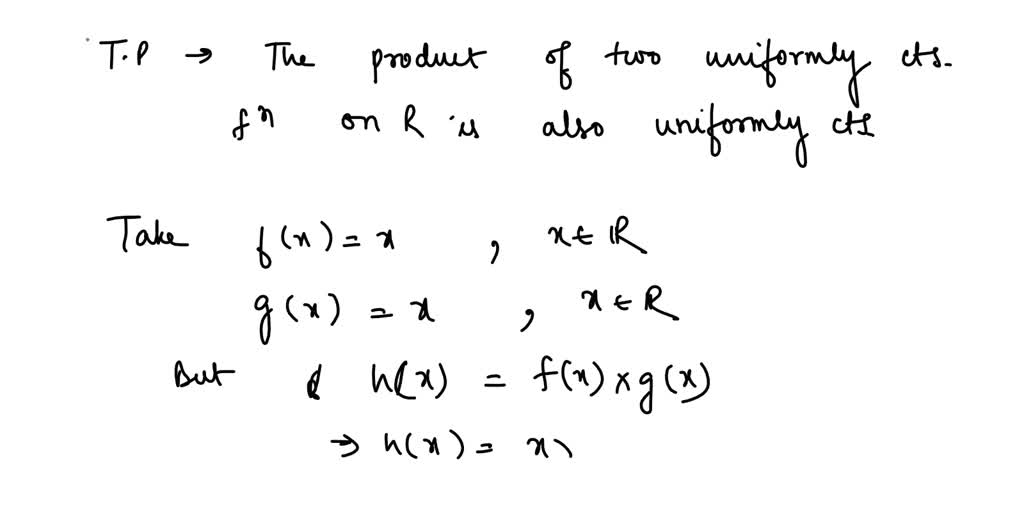 T.P → The product of two uniformly cts.
fⁿ on R is also uniformly cts
Take f(x) = x , x ∈ ℝ
g(x) = x , x ∈ R
But h(x) = f(x) × g(x)
→ h(x) = x